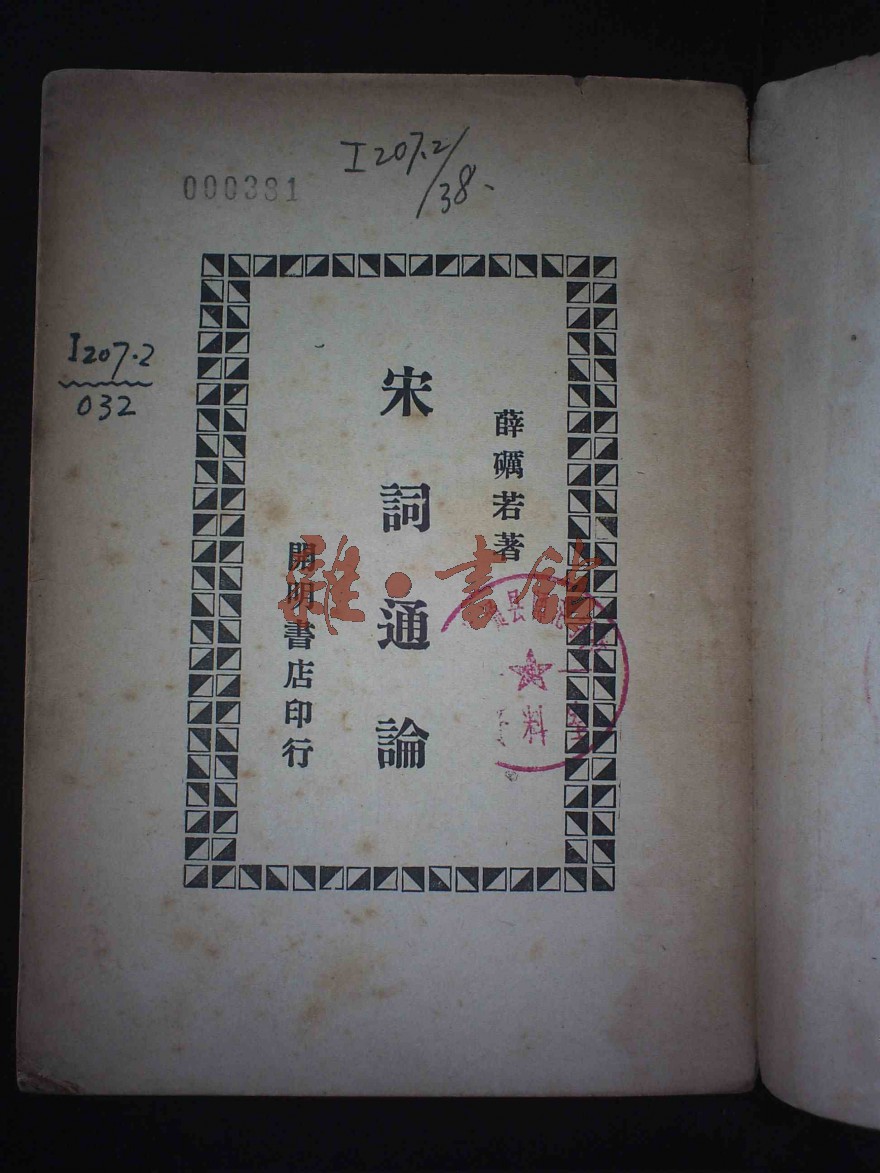 I207.2/38.
000381
I207.2
032
薛礪若著
宋詞通論
開明書店印行
雜·書館
县
料室